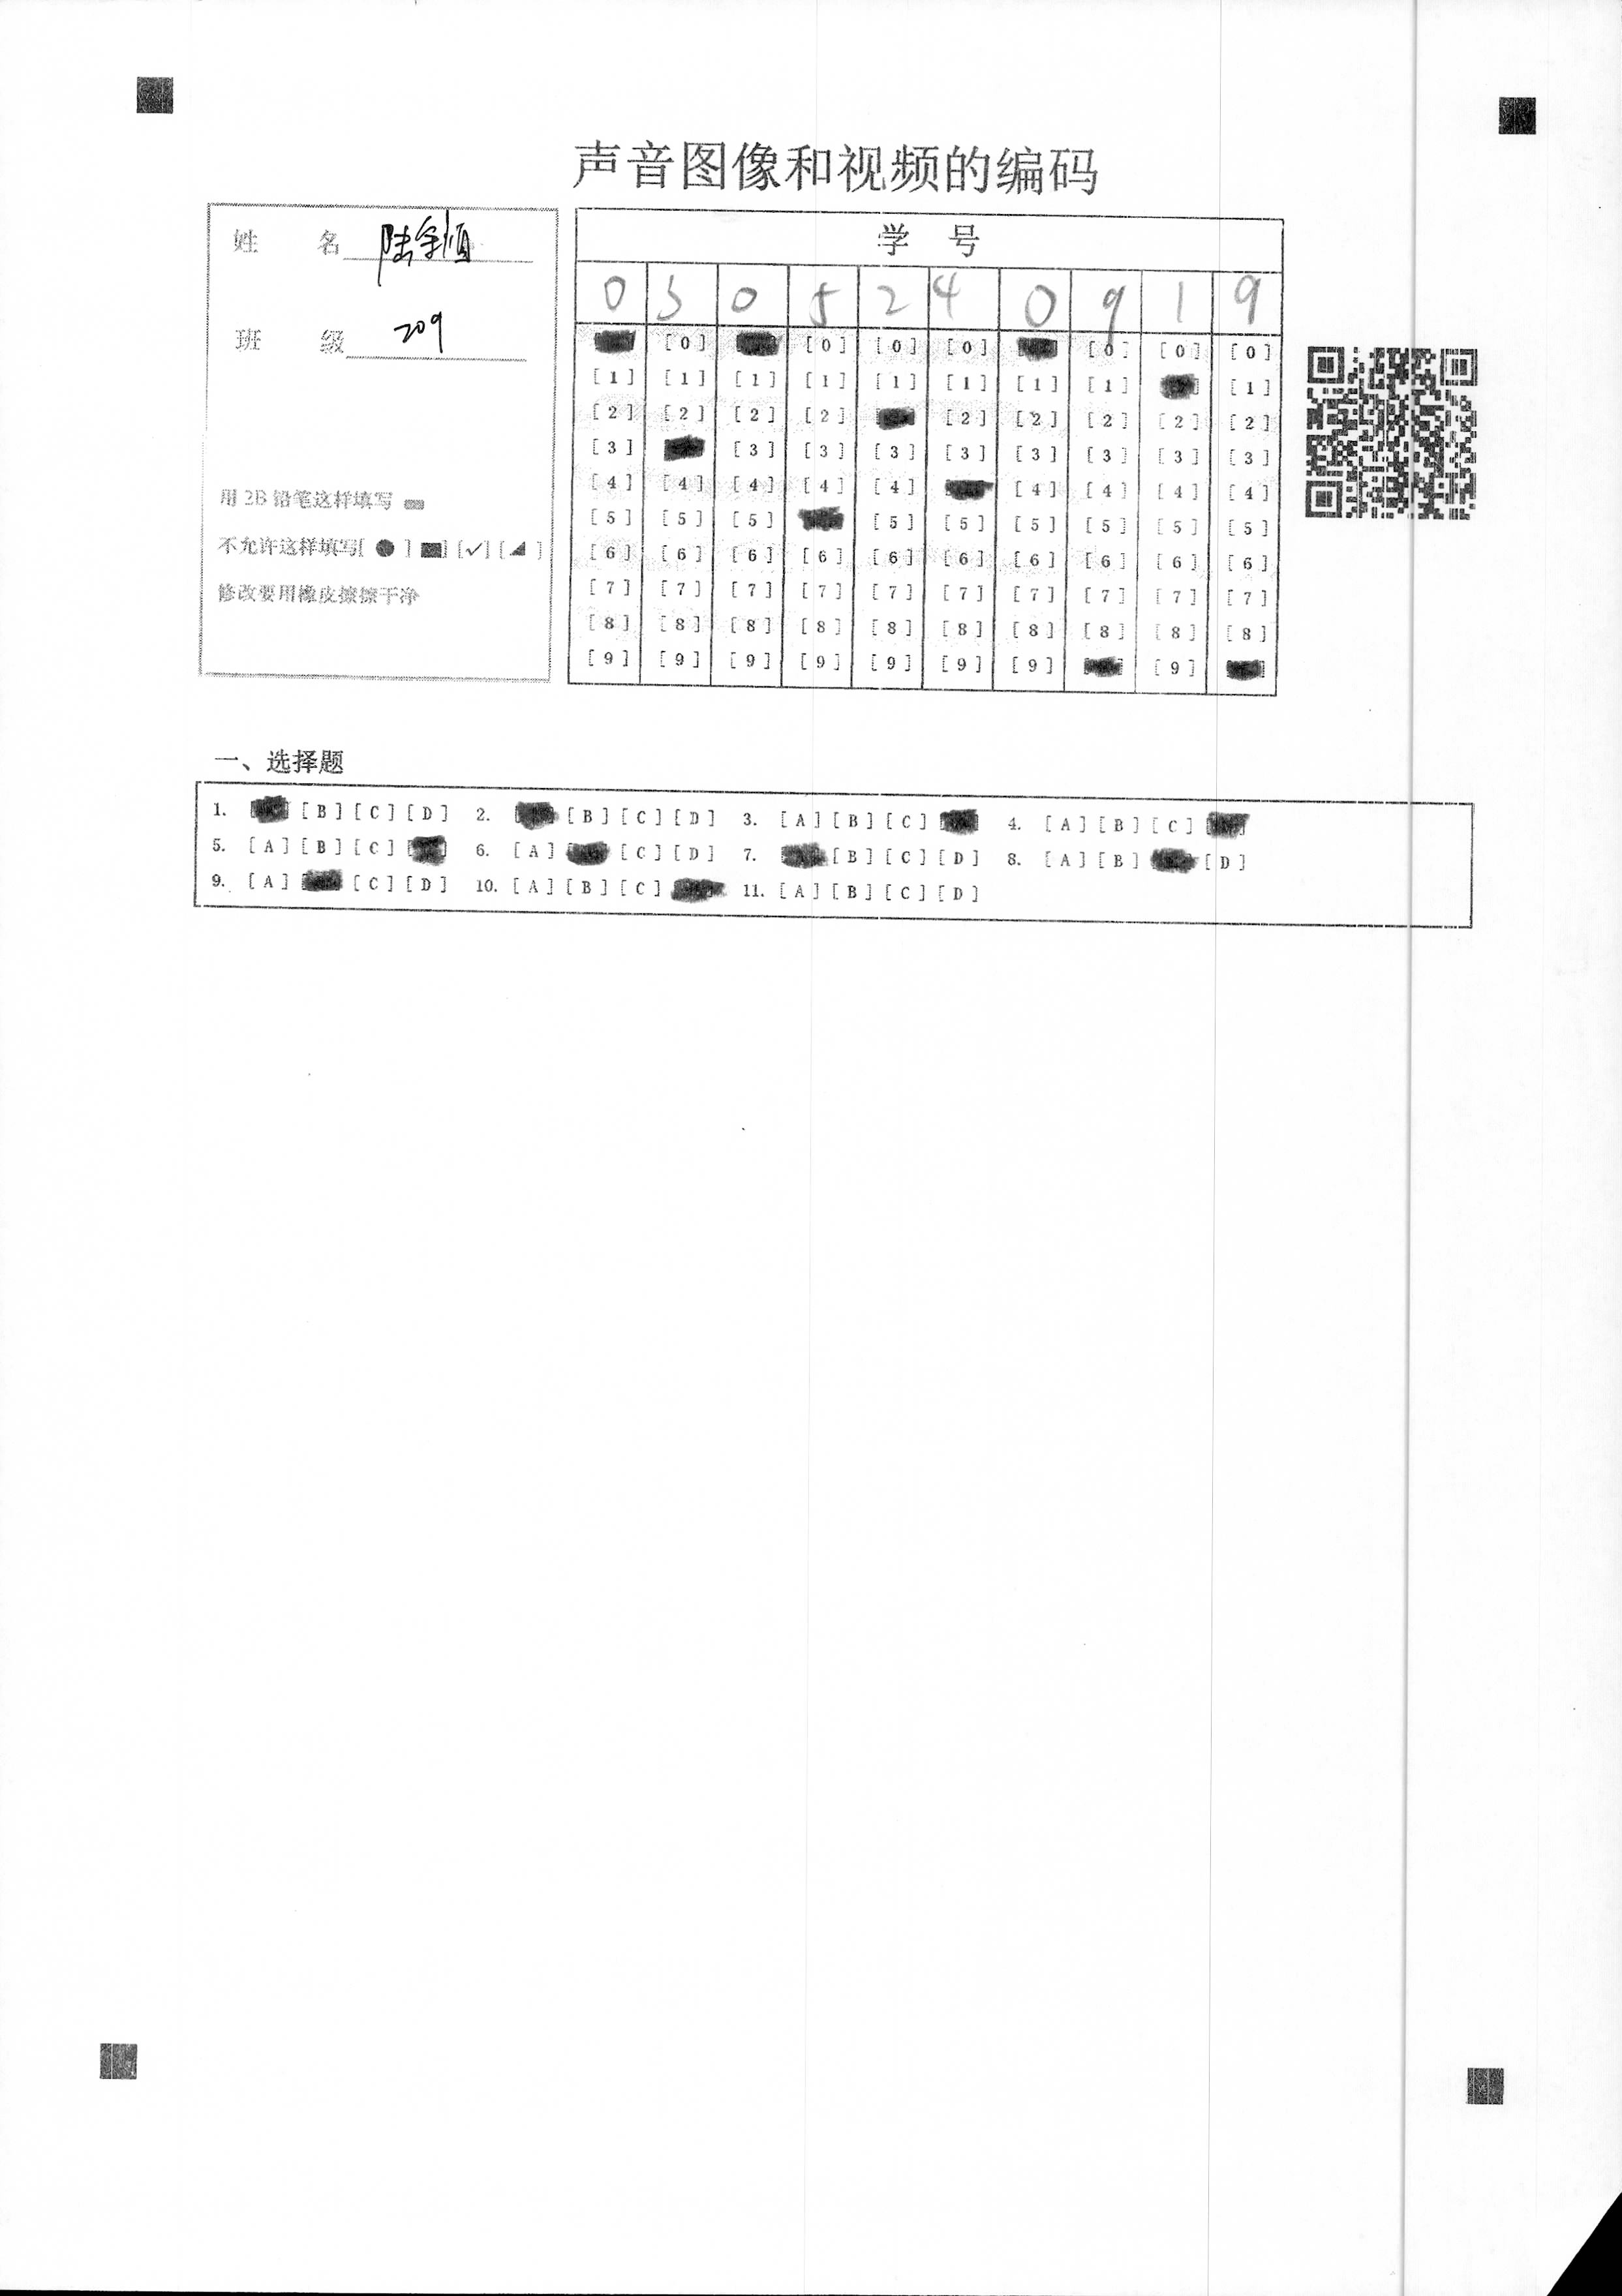 声音图像和视频的编码
姓 名
班 级 209
用 2B 铅笔这样填写
不允许这样填写[ ● ] ■] [✓] [◢ ]
修改要用橡皮擦擦干净
学 号
0 3 0 5 2 4 0 9 1 9
[0] [0] [0] [0] [0] [0] [0]
[1] [1] [1] [1] [1] [1] [1] [1] [1]
[2] [2] [2] [2] [2] [2] [2] [2] [2]
[3] [3] [3] [3] [3] [3] [3] [3] [3]
[4] [4] [4] [4] [4] [4] [4] [4] [4]
[5] [5] [5] [5] [5] [5] [5] [5] [5]
[6] [6] [6] [6] [6] [6] [6] [6] [6] [6]
[7] [7] [7] [7] [7] [7] [7] [7] [7] [7]
[8] [8] [8] [8] [8] [8] [8] [8] [8] [8]
[9] [9] [9] [9] [9] [9] [9] [9]
一、选择题
1. [B] [C] [D] 2. [B] [C] [D] 3. [A] [B] [C] 4. [A] [B] [C]
5. [A] [B] [C] 6. [A] [C] [D] 7. [B] [C] [D] 8. [A] [B] [D]
9. [A] [C] [D] 10. [A] [B] [C] 11. [A] [B] [C] [D]